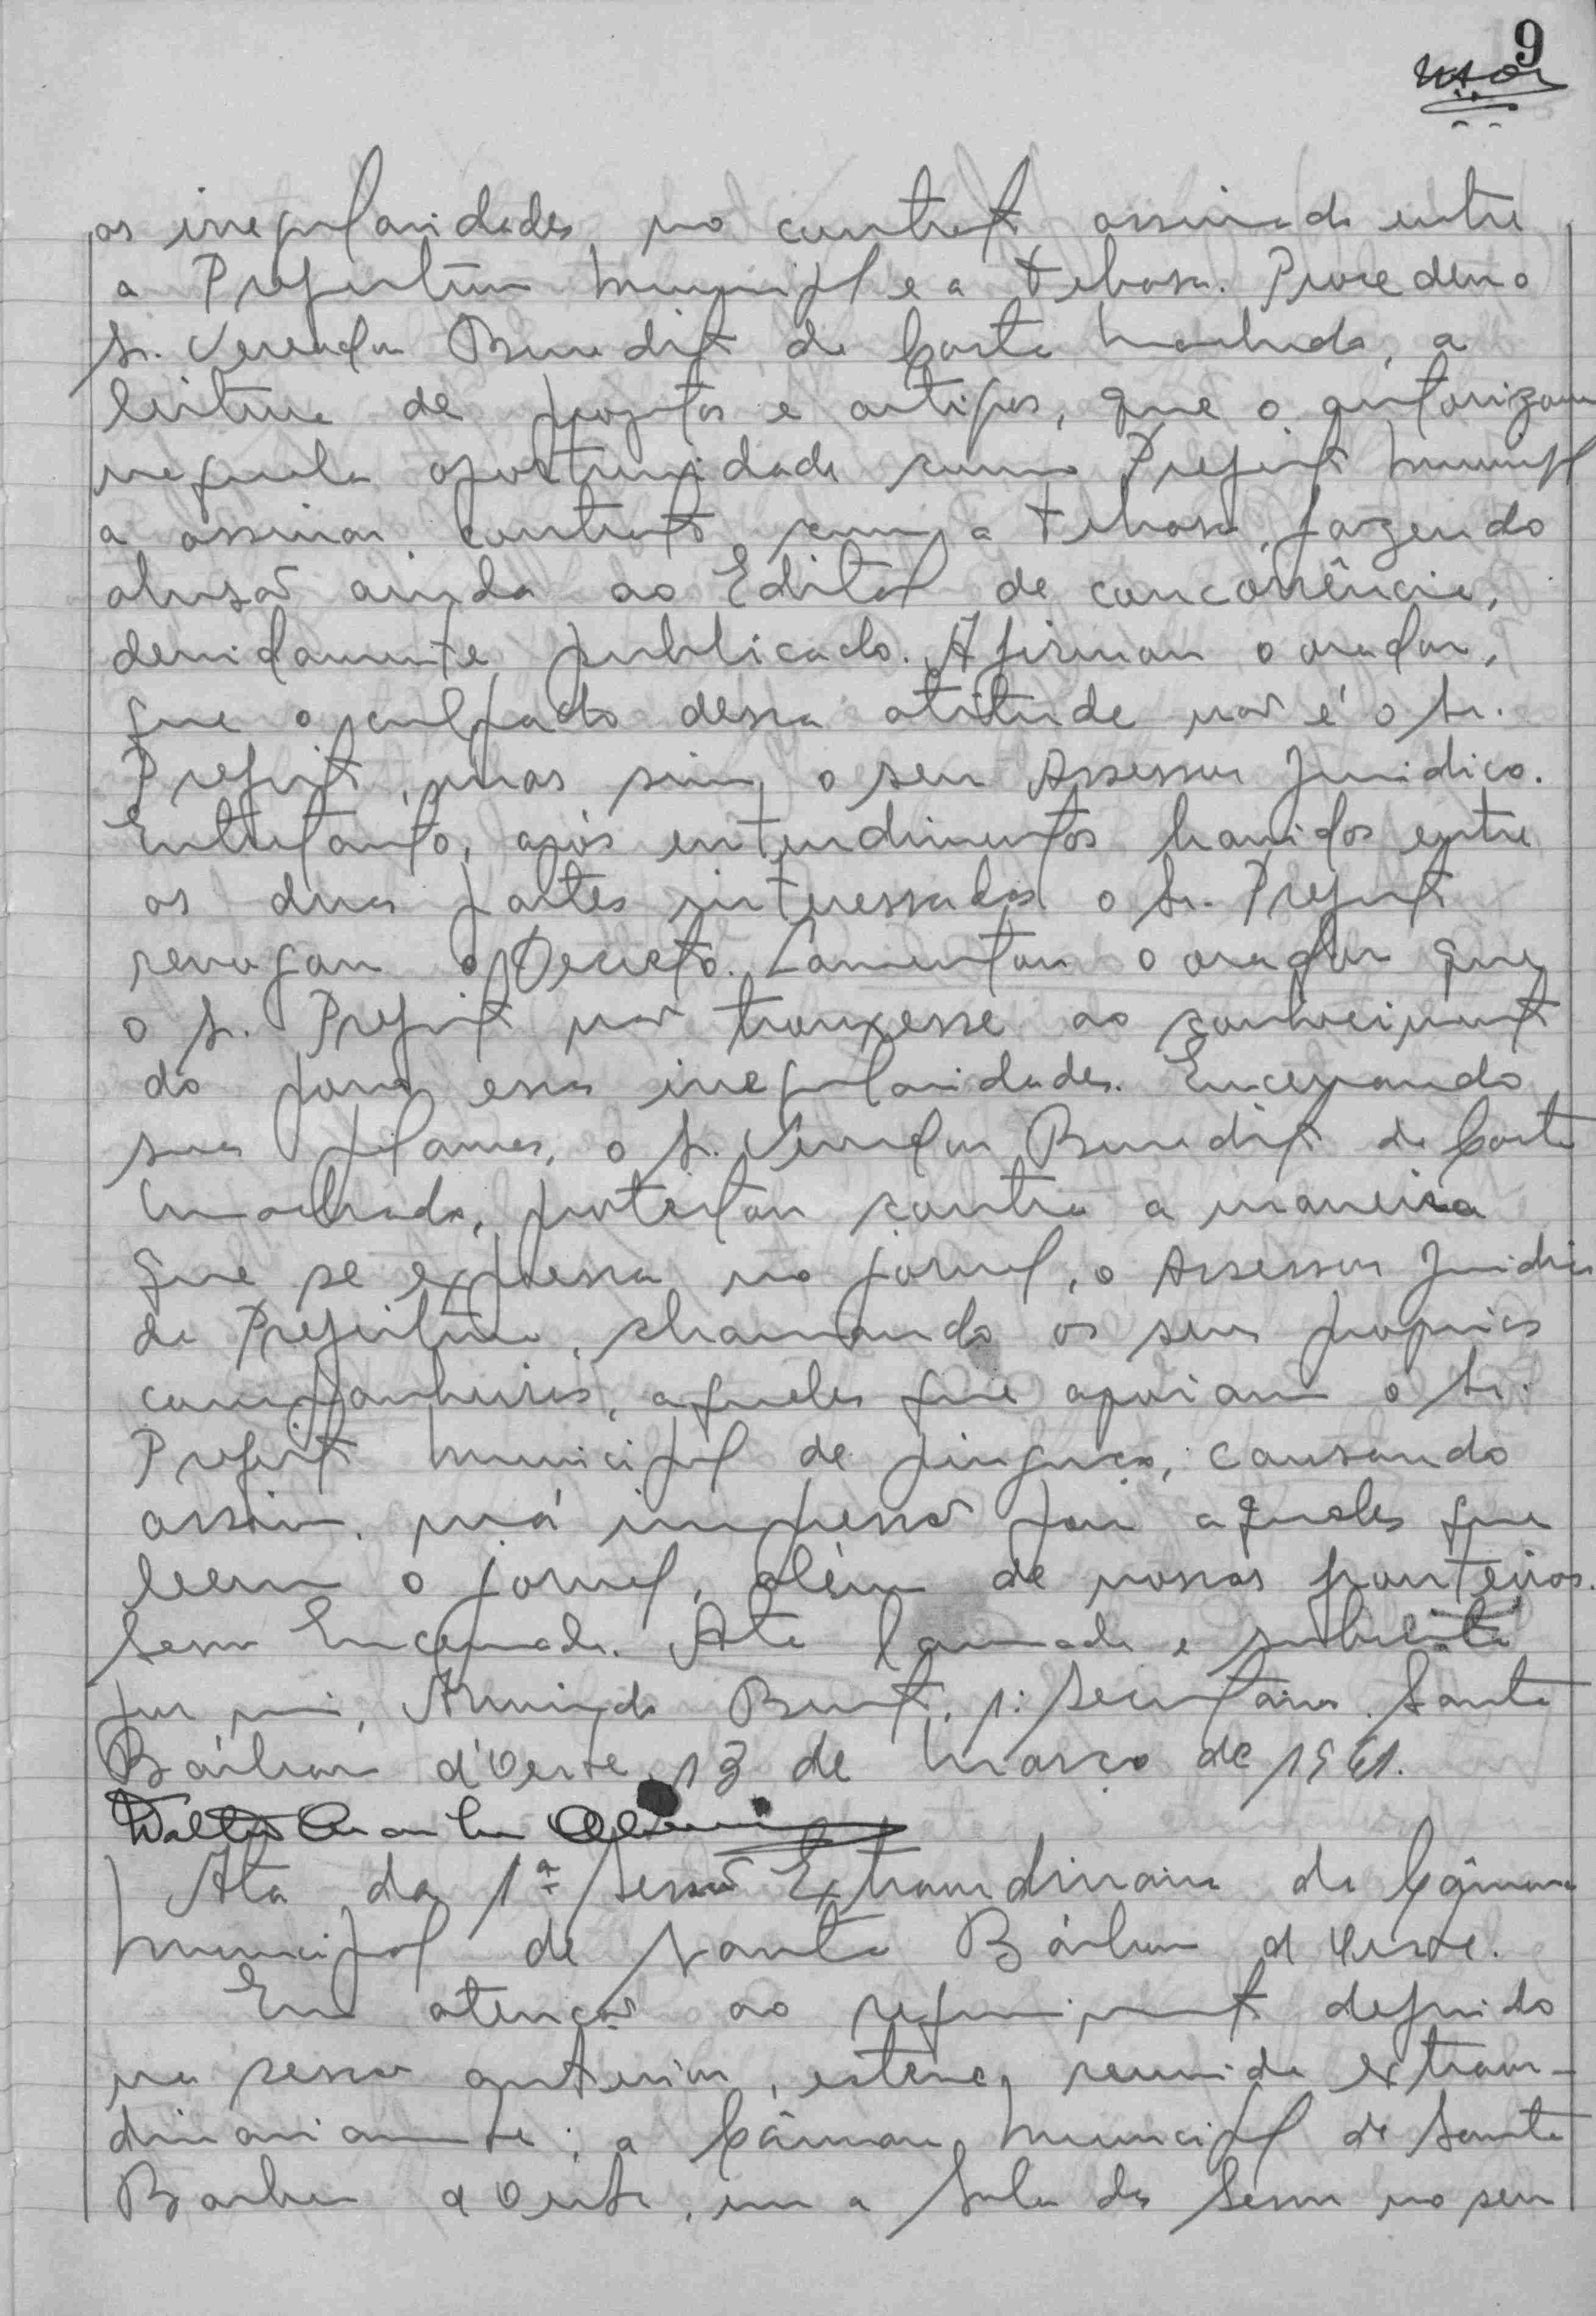 9
as irregularidades, no contrato assinado entre
a Prefeitura Municipal e a Tebasa. Procedeu o
Sr. Vereador Benedito da Costa Machado, a
leitura de projetos e artigos, que o autorizam
naquela oportunidade como Prefeito Municipal
a assinar contrato com a Tebasa, fazendo
alusão ainda ao Edital de concorrência,
devidamente publicado. Afirmou o orador,
que o culpado dessa atitude não é o Sr.
Prefeito, mas sim, o seu Assessor Juridico.
Entretanto, após entendimentos havidos entre
as duas partes interessadas o Sr. Prefeito
revogou o Decreto. Lamentou o orador que
o Sr. Prefeito não trouxesse ao conhecimento
do povo essas irregularidades. Encerrando
suas palavras, o Sr. Vereador Benedito da Costa
Machado, protestou contra a maneira
que se expressa no jornal, o Assessor Juridico
da Prefeitura, chamando os seus proprios
companheiros, aqueles que apoiam o Sr.
Prefeito Municipal de pinguços, causando
assim, má impressão para aqueles que
leem o jornal, além de nossas fronteiras.
Sessão Encerrada. Ata lavrada e subscrita
por mim, Armindo Bento, 1º Secretário. Santa
Bárbara d'Oeste, 13 de Março de 1961.
Walter
Ata da 1ª Sessão Extraordinaria da Câmara
Municipal de Santa Bárbara d'Oeste.
Em atenção ao requerimento deferido
na sessão anterior, esteve reunida extraor-
dinariamente, a Câmara Municipal de Santa
Barbara d'Oeste, em a Sala das Sessões no seu